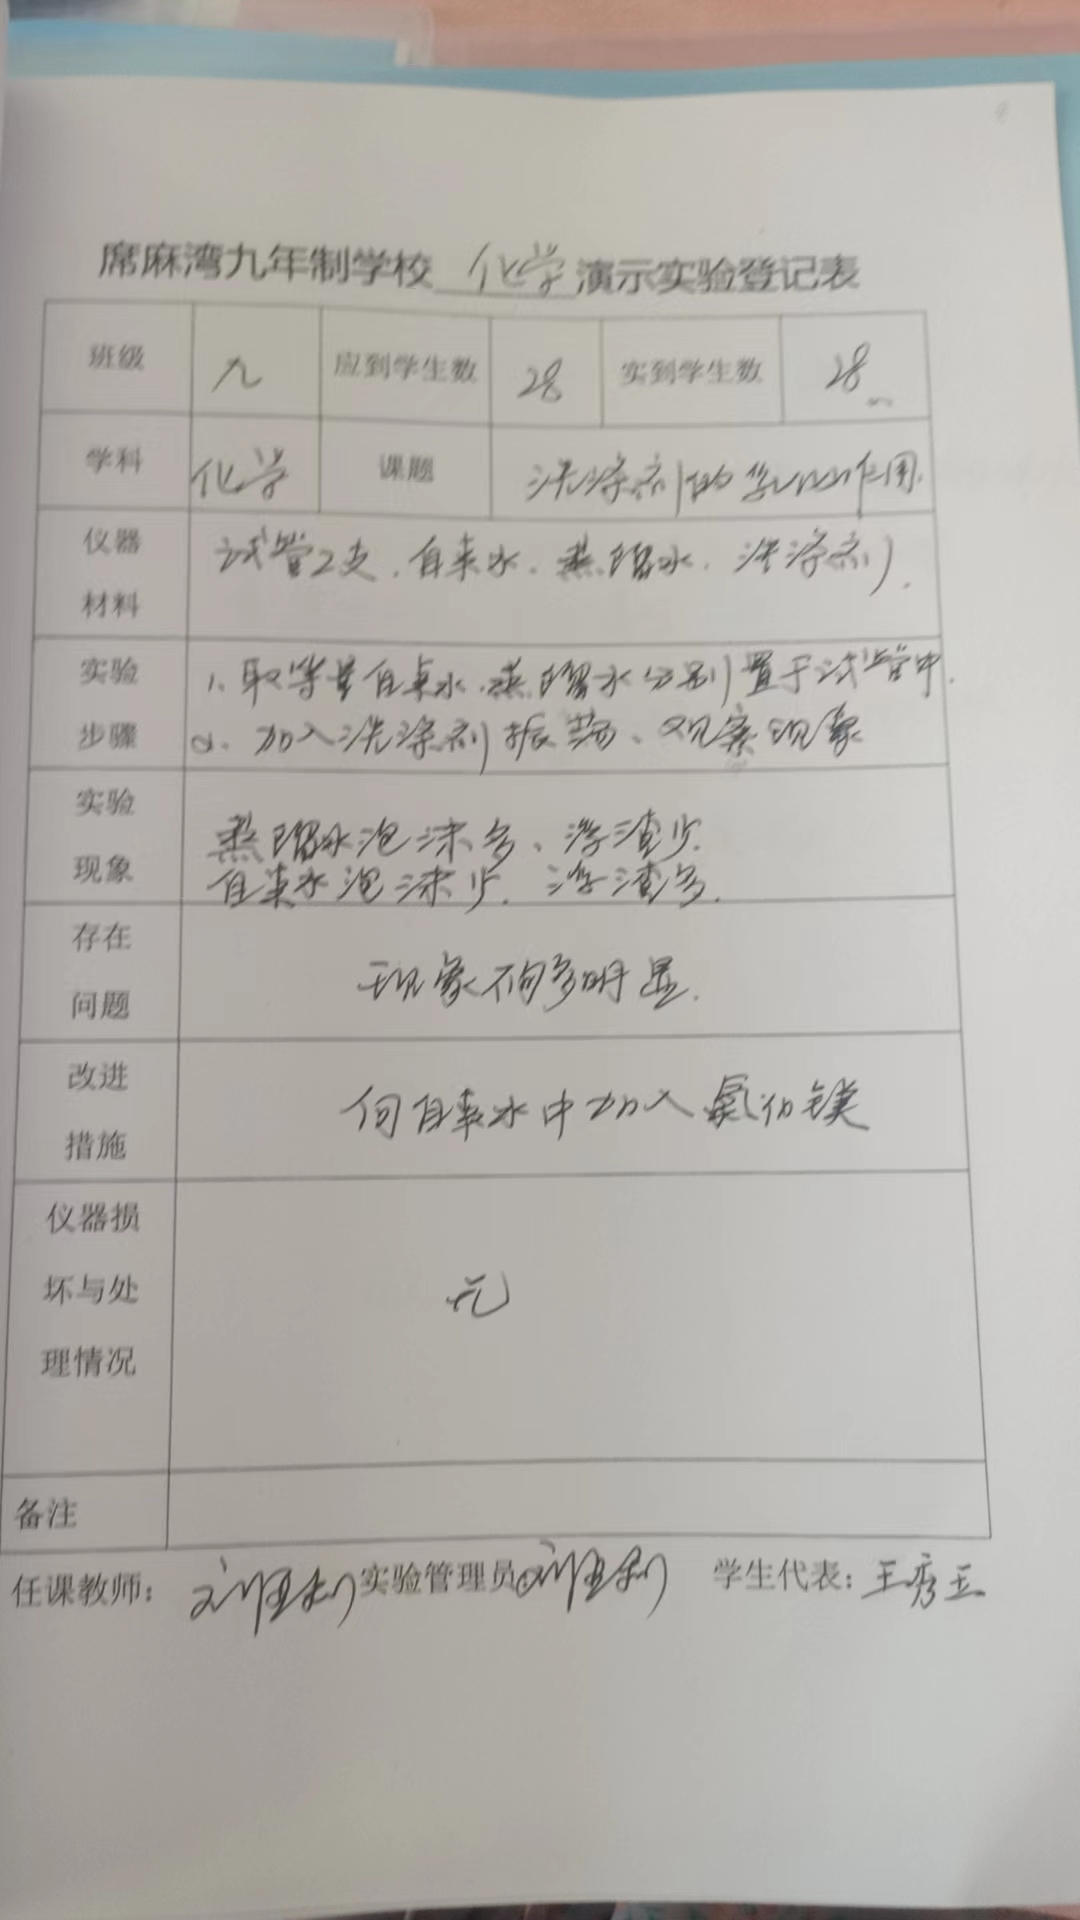 席麻湾九年制学校 化学 演示实验登记表
班级 九 应到学生数 28 实到学生数 28
学科 化学 课题 洗涤剂的乳化作用.
仪器 试管2支、自来水、蒸馏水、洗涤剂.
材料
实验 1、取等量自来水、蒸馏水分别置于试管中.
步骤 2、加入洗涤剂振荡、观察现象
实验
蒸馏水泡沫多、浮渣少.
现象 自来水泡沫少、浮渣多.
存在
现象不够明显.
问题
改进
何自来水中加入氯化镁
措施
仪器损
坏与处 无
理情况
备注
任课教师: 实验管理员: 学生代表: 王秀玉